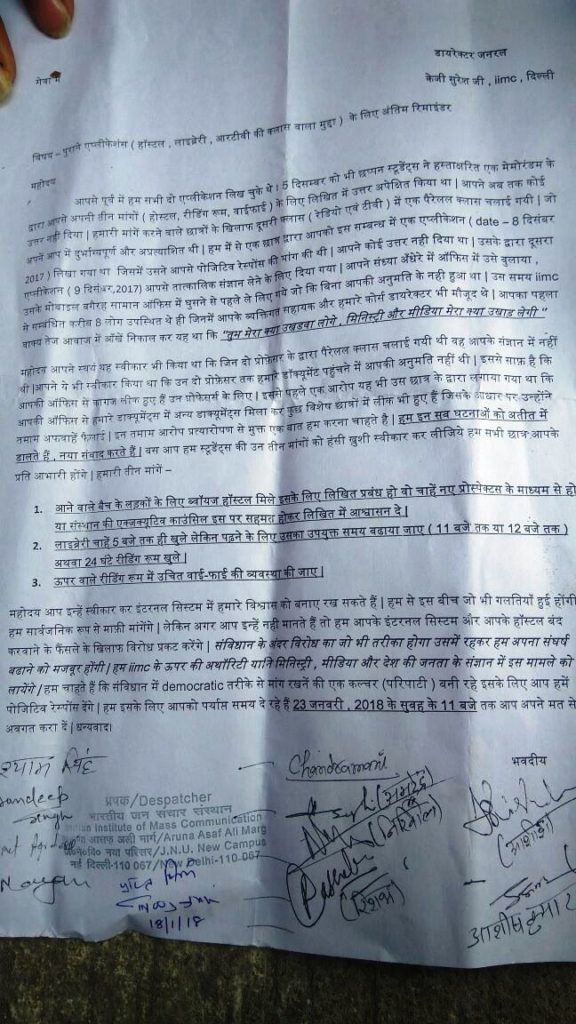 डायरेक्टर जनरल
सेवा में
केजी सुरेश जी , iimc , दिल्ली
विषय – पुराने एप्लीकेशंस ( हॉस्टल , लाइब्रेरी , आरटीवी की क्लास वाला मुद्दा ) के लिए अंतिम रिमाइंडर
महोदय
आपसे पूर्व में हम सभी दो एप्लीकेशन लिख चुके थे। 5 दिसम्बर को भी छप्पन स्टूडेंट्स ने हस्ताक्षरित एक मेमोरंडम के
द्वारा आपसे अपनी तीन मांगों ( होस्टल, रीडिंग रूम, वाईफाई ) के लिए लिखित में उत्तर अपेक्षित किया था | आपने अब तक कोई
उत्तर नहीं दिया | हमारी मांग करने वाले छात्रों के खिलाफ दूसरी क्लास ( रेडियो एवं टीवी ) में एक पैरेलल क्लास चलाई गयी | जो
अपने आप में दुर्भाग्यपूर्ण और अप्रत्याशित थी | हम में से एक छात्र द्वारा आपको इस सम्बन्ध में एक एप्लीकेशन ( date – 8 दिसंबर
2017 ) लिखा गया था जिसमें उसने आपसे पोजिटिव रेस्पोंस की मांग की थी | आपने कोई उत्तर नहीं दिया था | उसके द्वारा दूसरा
एप्लीकेशन ( 9 दिसंबर,2017) आपसे तात्कालिक संज्ञान लेने के लिए दिया गया | आपने संध्या अँधेरे में ऑफिस में उसे बुलाया ,
उसके मोबाइल वगैरह सामान ऑफिस में घुसने से पहले ले लिए गये जो कि बिना आपकी अनुमति के नही हुआ था | उस समय iimc
से सम्बंधित करीब 8 लोग उपस्थित थे ही जिनमें आपके व्यक्तिगत सहायक और हमारे कोर्स डायरेक्टर भी मौजूद थे | आपका पहला
वाक्य तेज आवाज में आँखें निकाल कर यह था कि "तुम मेरा क्या उखड़वा लोगे , मिनिस्ट्री और मीडिया मेरा क्या उखाड़ लेगी "
महोदय आपने स्वयं यह स्वीकार भी किया था कि जिन दो प्रोफ़ेसर के द्वारा पैरेलल क्लास चलाई गयी थी वह आपके संज्ञान में नहीं
थी |आपने ये भी स्वीकार किया था कि उन दो प्रोफ़ेसर तक हमारे डॉक्यूमेंट पहुंचने में आपकी अनुमति नहीं थी | इससे साफ़ है कि
आपकी ऑफिस से कागज लीक हुए हैं उन प्रोफेसर्स के लिए | इससे पहले एक आरोप यह भी उस छात्र के द्वारा लगाया गया था कि
आपकी ऑफिस से हमारे डाक्यूमेंट्स में अन्य डाक्यूमेंट्स मिला कर कुछ विशेष छात्रों में लीक भी हुए हैं जिसके आधार पर उन्होंने
तमाम अफवाहें फैलाई | इन तमाम आरोप प्रत्यारोपण से मुक्त एक बात हम करना चाहते है | हम इन सब घटनाओं को अतीत में
डालते हैं , नया संवाद करते हैं | बस आप हम स्टूडेंट्स की उन तीन मांगों को हंसी खुशी स्वीकार कर लीजिये हम सभी छात्र आपके
प्रति आभारी होंगे | हमारी तीन मांगें –
1. आने वाले बैच के लड़कों के लिए ब्वॉयज हॉस्टल मिले इसके लिए लिखित प्रबंध हो वो चाहें नए प्रोस्पेक्टस के माध्यम से हो
या संस्थान की एक्जक्यूटिव काउंसिल इस पर सहमत होकर लिखित में आश्वासन दे |
2. लाइब्रेरी चाहें 5 बजे तक ही खुले लेकिन पढ़ने के लिए उसका उपयुक्त समय बढाया जाए ( 11 बजे तक या 12 बजे तक )
अथवा 24 घंटे रीडिंग रूम खुले |
3. ऊपर वाले रीडिंग रूम में उचित वाई-फाई की व्यवस्था की जाए |
महोदय आप इन्हें स्वीकार कर इंटरनल सिस्टम में हमारे विश्वास को बनाए रख सकते हैं | हम से इस बीच जो भी गलतियाँ हुई होंगी
हम सार्वजनिक रूप से माफ़ी मांगेंगे | लेकिन अगर आप इन्हें नही मानते हैं तो हम आपके इंटरनल सिस्टम और आपके हॉस्टल बंद
करवाने के फैंसले के खिलाफ विरोध प्रकट करेंगे | संविधान के अंदर विरोध का जो भी तरीका होगा उसमें रहकर हम अपना संघर्ष
बढाने को मजबूर होंगी | हम iimc के ऊपर की अथॉरिटी यानि मिनिस्ट्री , मीडिया और देश की जनता के संज्ञान में इस मामले को
लायेंगे | हम चाहते हैं कि संविधान में democratic तरीके से मांग रखनें की एक कल्चर (परिपाटी ) बनी रहे इसके लिए आप हमें
पोजिटिव रेस्पोंस देंगे | हम इसके लिए आपको पर्याप्त समय दे रहे हैं 23 जनवरी , 2018 के सुवह के 11 बजे तक आप अपने मत से
अवगत करा दें | धन्यवाद।
भवदीय
श्याम सिंह
Chandramani
Sandeep
Singh
प्रेषक/Despatcher
भारतीय जन संचार संस्थान
Indian Institute of Mass Communication
अरुणा आसफ अली मार्ग/Aruna Asaf Ali Marg
जे०एन०यू० नया परिसर/J.N.U. New Campus
नई दिल्ली-110 067/New Delhi-110 067
Nayan
18/1/18
आशीष कुमार